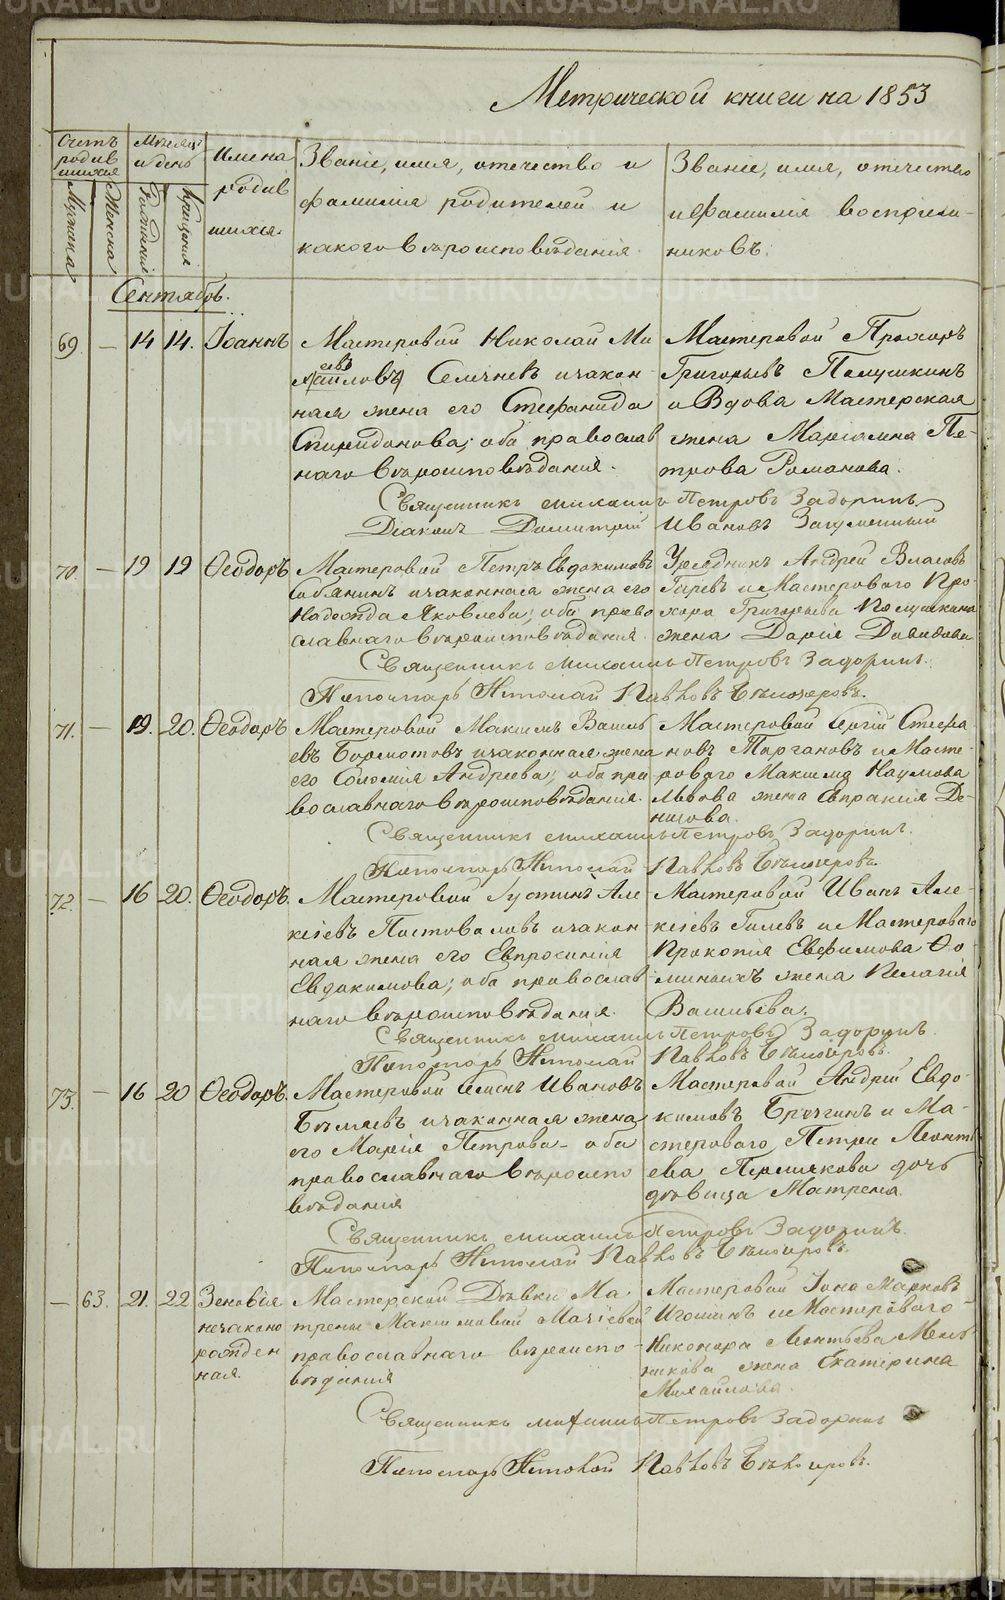 Метрической книги на 1853
Счетъ родившихся
Мужеска
Женска
Месяцъ и день
Рождения
Крещения
Имена родившихся.
Званіе, имя, отечество и
фамилія родителей и
какого вѣроисповѣданія.
Званіе, имя, отечество
и фамилія воспріем-
никовъ.
Сентябрь.
69. — 14 14. Іоаннъ
Мастеровой Николай Ми
Семеневъ и закон
ная жена его Стефанида
Спиридонова; оба православ
наго вѣроисповѣданія.
Мастеровой Прохоръ
Григорьевъ Полушкинъ
и Вдова Мастерская
жена Маріамна Пе-
трова Романова.
Священникъ Михаилъ Петровъ Задоринъ
Діаконъ Димитрій Ивановъ
70. — 19 19 Ѳеодоръ
Мастеровой Петръ Евдокимовъ
Собянинъ и законная жена его
Надежда Яковлева; оба право
славнаго вѣроисповѣданія.
Урядникъ Андрей Власовъ
и Мастероваго Про-
хора Григорьева Полушкина
жена Дарія Давидова
Священникъ Михаилъ Петровъ Задоринъ.
Пономарь Николай Павловъ Бѣлозеровъ.
71. — 19. 20. Ѳеодоръ
Мастеровой Максимъ Василь
евъ Бормотовъ и законная жена
его Соломія Андреева; оба пра
вославнаго вѣроисповѣданія.
Мастеровой Сергій Стефа
новъ и Масте-
роваго Максима Наумова
Львова жена Евпраксія Де-
нисова.
Священникъ Михаилъ Петровъ Задоринъ.
Пономарь Николай Павловъ Бѣлозеровъ.
72. — 16 20. Ѳеодоръ.
Мастеровой Іустинъ Але
ксіевъ Постоваловъ и закон
ная жена его Евпроксинія
Евдокимова; оба православ
наго вѣроисповѣданія.
Мастеровой Иванъ Але-
ксіевъ Гилевъ и Мастероваго
Прокопія Евфимова Ѳо-
миныхъ жена Пелагія
Васильева.
Священникъ Михаилъ Петровъ Задоринъ.
Пономарь Николай Павловъ Бѣлозеровъ.
73. — 16 20 Ѳеодоръ.
Мастеровой Семенъ Ивановъ
Бѣляевъ и законная жена
его Марія Петрова — оба
православнаго вѣроиспо
вѣданія
Мастеровой Андрей Евдо-
кимовъ и Ма-
стероваго Петра Леонть
ева Пермякова дочь
дѣвица Матрена.
Священникъ Михаилъ Петровъ Задоринъ.
Пономарь Николай Павловъ Бѣлозеровъ.
— 63. 21. 22 Зеновія
незаконо
рожден
ная.
Мастерской Дѣвки Ма
трены Максимовой
православнаго вѣроиспо
вѣданія
Мастеровой Іона Марковъ
и Мастероваго
Никонора Леонтьева Мель
никова жена Екатерина
Михайлова.
Священникъ Михаилъ Петровъ Задоринъ
Пономарь Николай Павловъ Бѣлозеровъ.
METRIKI.GASO-URAL.RU